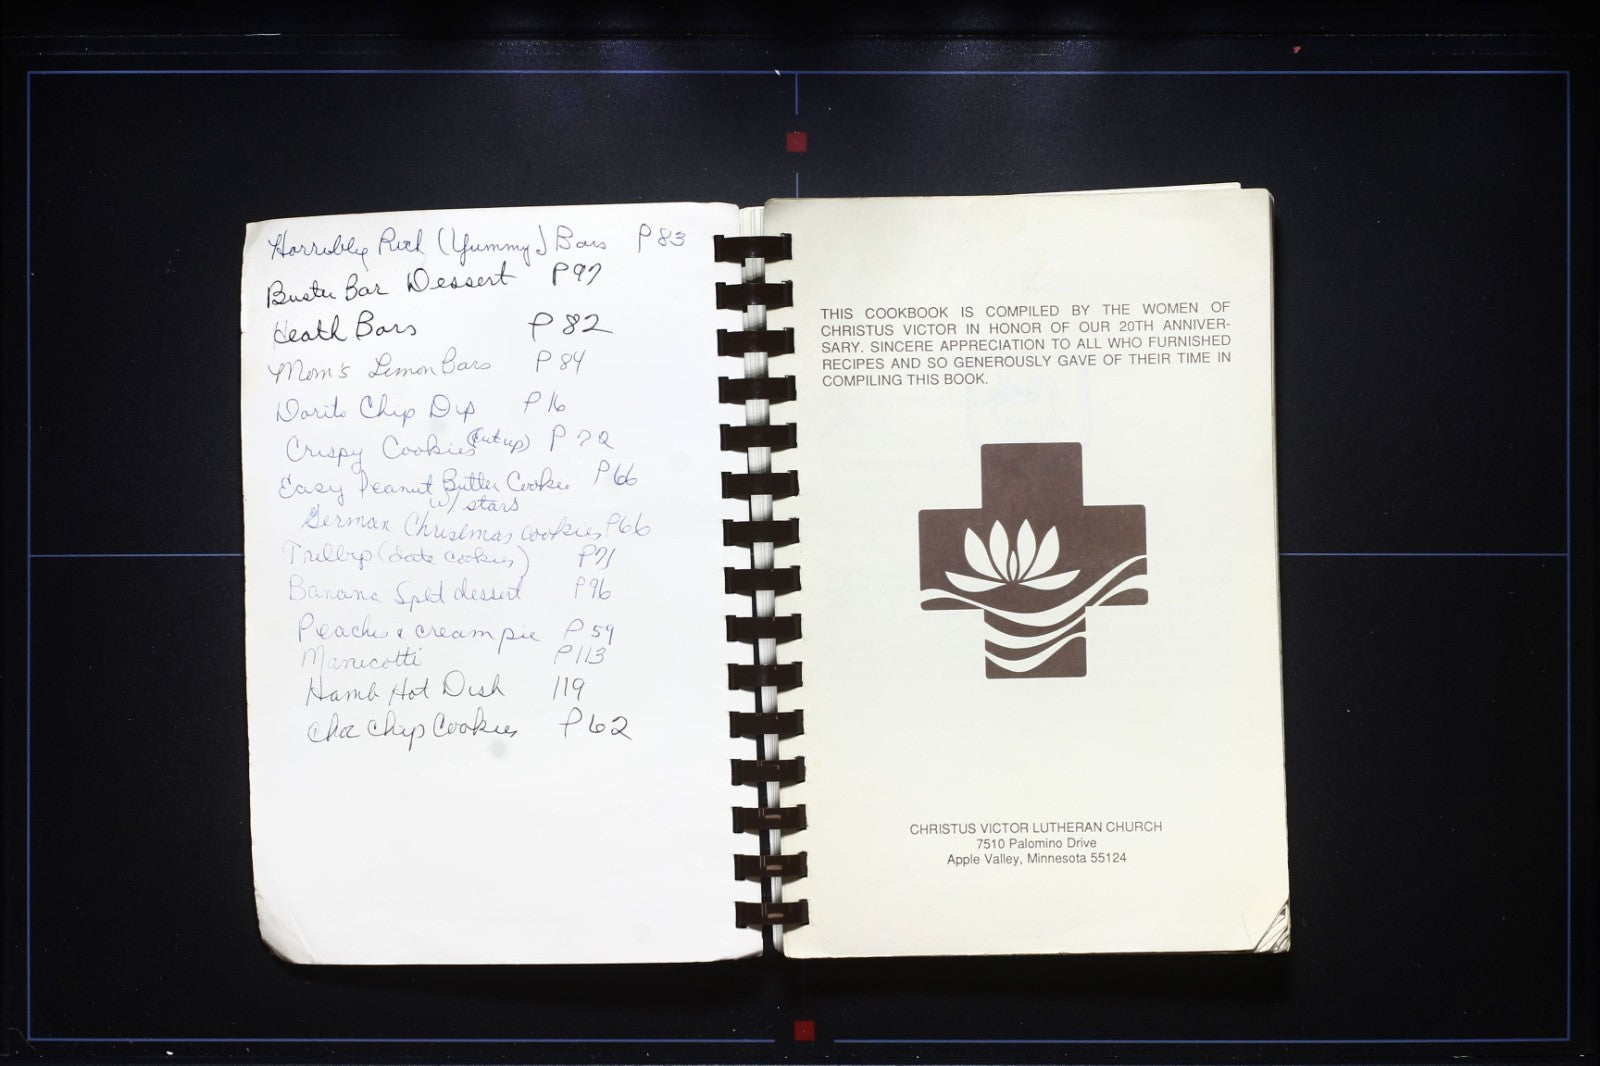 Horribly Rich (Yummy) Bars P 83
Buster Bar Dessert P 97
Heath Bars P 82
Mom's Lemon Bars P 84
Dorito Chip Dip P 16
Crispy Cookies (cut up) P 72
Easy Peanut Butter Cookie P 66
w/ stars
German Christmas cookies P66
(date cookies) P71
Banana Split dessert P96
Peaches & cream pie P 59
Manicotti P113
Hamb Hot Dish 119
Choc Chip Cookies P62
THIS COOKBOOK IS COMPILED BY THE WOMEN OF
CHRISTUS VICTOR IN HONOR OF OUR 20TH ANNIVER-
SARY. SINCERE APPRECIATION TO ALL WHO FURNISHED
RECIPES AND SO GENEROUSLY GAVE OF THEIR TIME IN
COMPILING THIS BOOK.
CHRISTUS VICTOR LUTHERAN CHURCH
7510 Palomino Drive
Apple Valley, Minnesota 55124